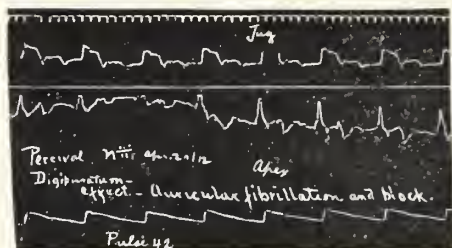 Jug
Percival Apr. 20/12
Apex
Digipuratum -
effect. - Auricular fibrillation and block.
Pulse 42